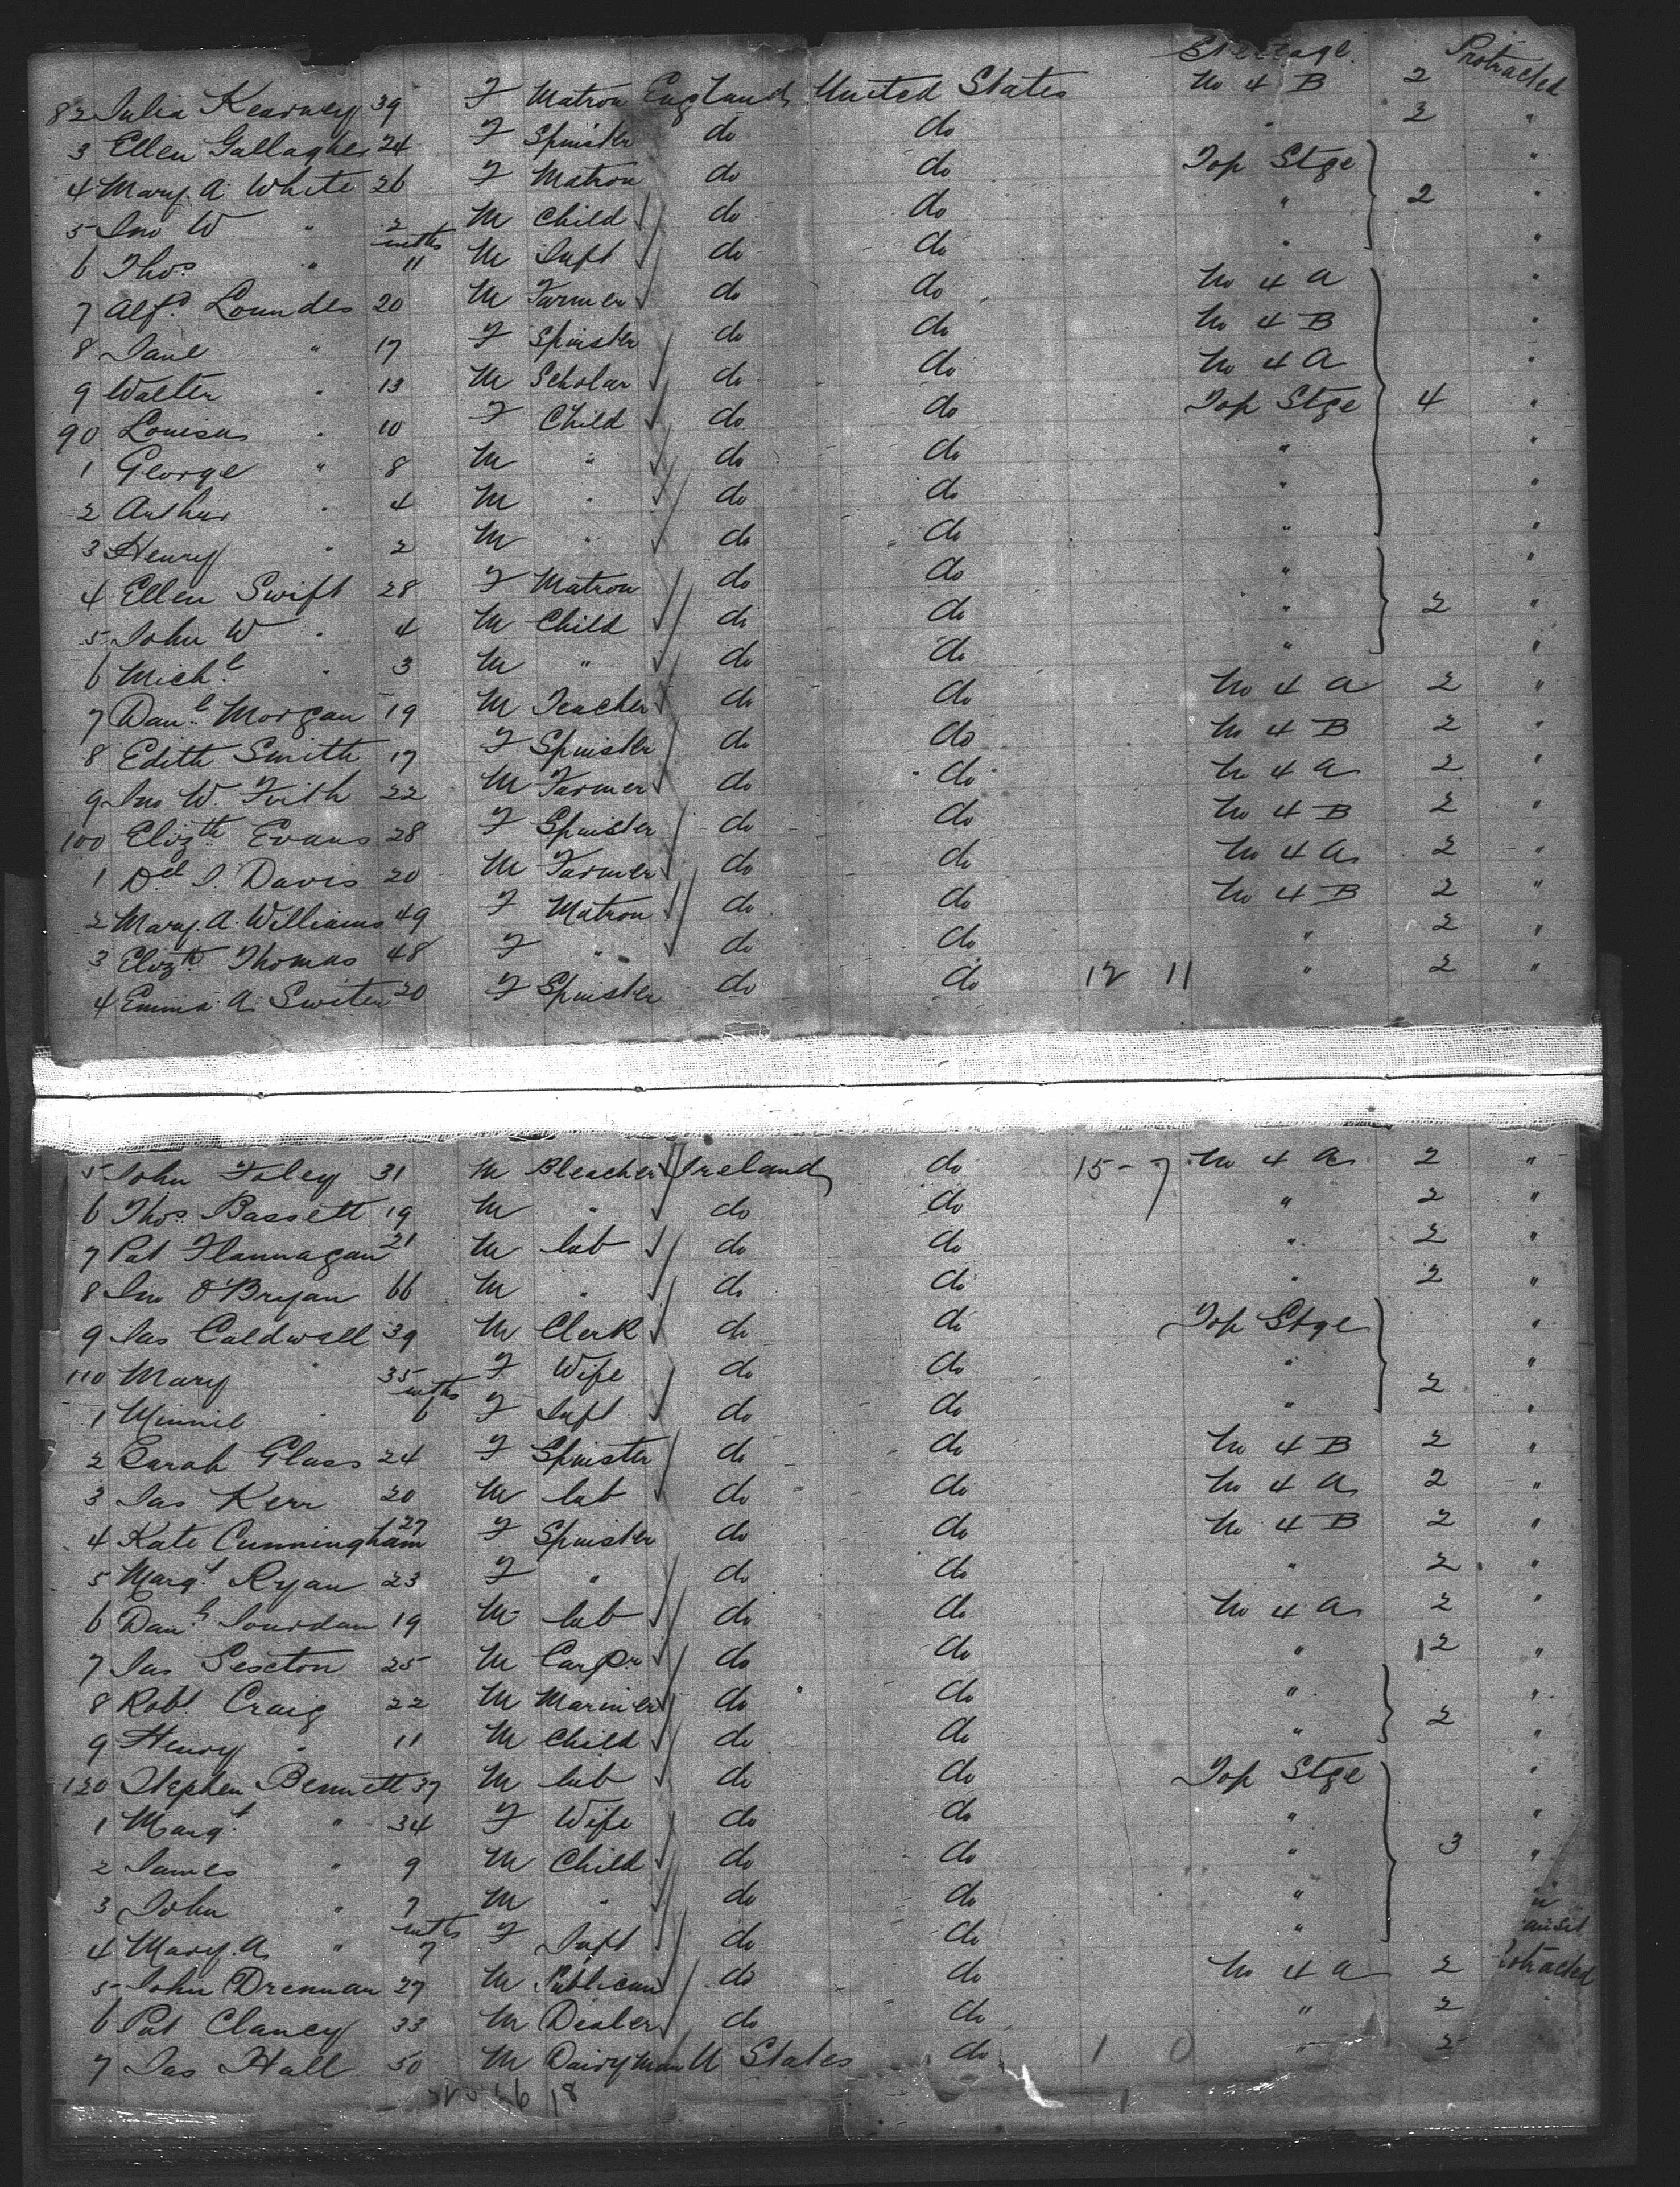 Steerage. Protracted
82 Julia Kearney 39 F Matron England United States No 4 B 2 "
3 Ellen Gallagher 24 F Spinster do do " 2 "
4 Mary A. White 26 F Matron do do Top Stge "
5 Jno W " 2 M Child do do " 2 "
6 Thos " mths 11 M Inft do do " "
7 Alfd Lowndes 20 M Farmer do do No 4 A "
8 Jane " 17 F Spinster do do No 4 B "
9 Walter " 13 M Scholar do do No 4 A "
90 Louisa " 10 F Child do do Top Stge 4 "
1 George " 8 M " do do " "
2 Arthur " 4 M " do do " "
3 Henry " 2 M " do do " "
4 Ellen Swift 28 F Matron do do " "
5 John W " 4 M Child do do " 2 "
6 Michl " 3 M " do do " "
7 Danl Morgan 19 M Teacher do do No 4 A 2 "
8 Edith Smith 17 F Spinster do do No 4 B 2 "
9 Jno W. Firth 22 M Farmer do do No 4 A 2 "
100 Elizth Evans 28 F Spinster do do No 4 B 2 "
1 Dd J. Davis 20 M Farmer do do No 4 A 2 "
2 Mary. A. Williams 49 F Matron do do No 4 B 2 "
3 Elizth Thomas 48 F " do do " 2 "
4 Emma A. 20 F Spinster do do 12 11 " 2 "
5 John Foley 31 M Bleacher Ireland do 15 - 7 No 4 A 2 "
6 Thos Bassett 19 M " do do " 2 "
7 Pat Flannagan 21 M lab do do " 2 "
8 Jno O'Bryan 66 M " do do " 2 "
9 Jas Caldwell 39 M Clerk do do Top Stge "
110 Mary " 35 F Wife do do " "
1 Minnie " mths 6 F Inft do do " 2 "
2 Sarah Glass 24 F Spinster do do No 4 B 2 "
3 Jas Kerr 20 M lab do do No 4 A 2 "
4 Kate Cunningham 27 F Spinster do do No 4 B 2 "
5 Margt Ryan 23 F " do do " 2 "
6 Danl Jourdan 19 M lab do do No 4 A 2 "
7 Jas Sexton 25 M Carpr do do " 2 "
8 Robt Craig 22 M Mariner do do " "
9 Henry " 11 M Child do do " 2 "
120 Stephen Bennett 37 M lab do do Top Stge "
1 Margt " 34 F Wife do do " "
2 James " 9 M Child do do " 3 "
3 John " 7 M " do do " "
4 Mary. A " mths 7 F Inft do do "
5 John Drennan 27 M Publican do do No 4 A 2 Protracted
6 Pat Clancy 33 M Dealer do do " 2
7 Jas Hall 50 M Dairyman U States do 1 0 " 2